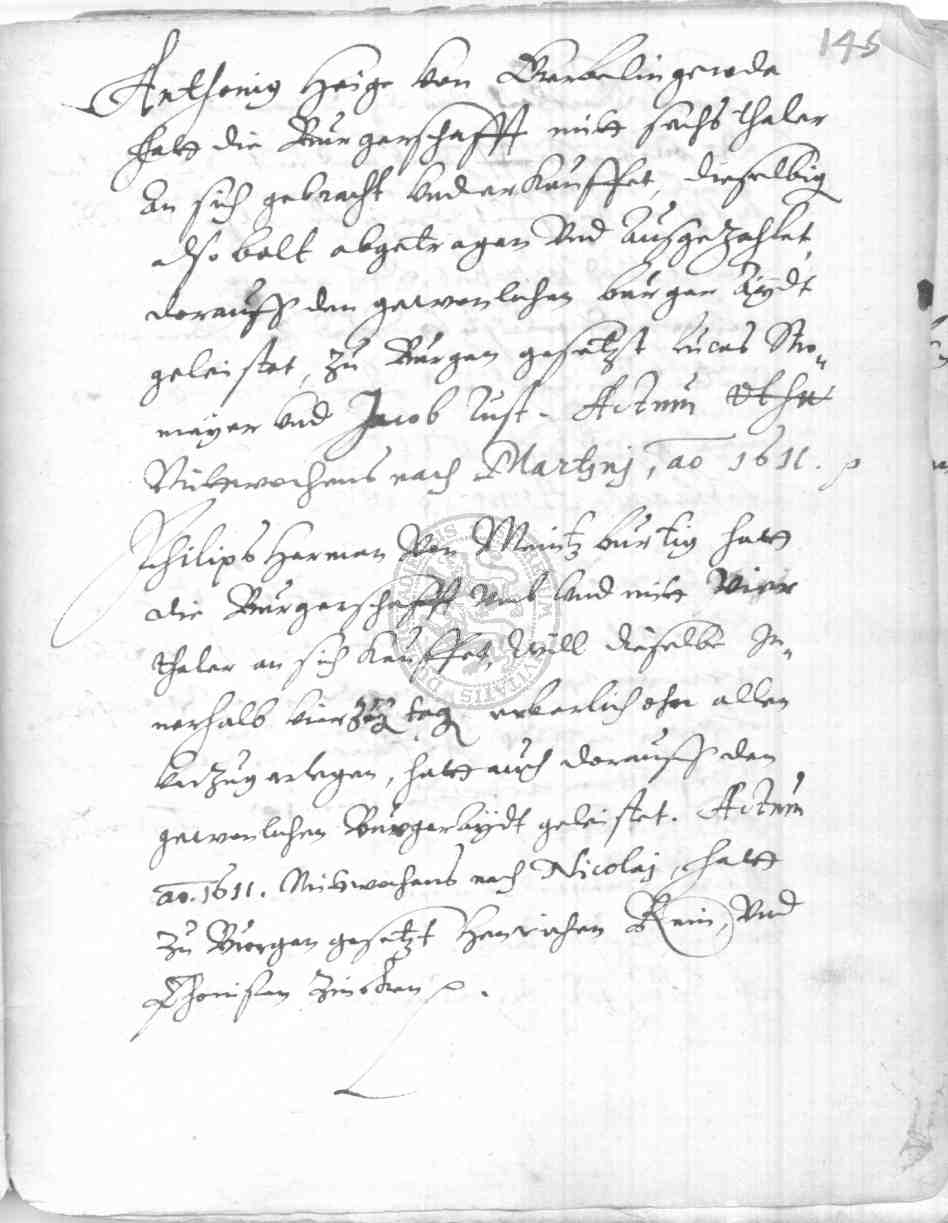 145
Anthonig Heige von Gerbelingeroda
hatt die Burgerschafft mitt sechs thaler
an sich gebracht und erkauffet, dieselbig
also balt abgetragen Vnd Ausgezahlet
dorauff den gewonlichen burger Aÿdt
geleistet, Zu Burgen gesetzst Lucas Stro-
mayer und Jacob Just. Actum
Mittwochens nach Martinj, ao 1611.
Philips Herman Von Maintz burtig hatt
die Burgerschafft Vmb Vnd mitt Vier
thaler an sich kauffet, Will dieselbe In-
nerhalb vierzeh tag erberlich ohn allen
verzug erlegen, hatt auch dorauff den
gewonlichen Burgeraÿdt geleistet. Actum
ao. 1611. Mittwochens nach Nicolaj, hatt
Zu Burgen gesetzt Henrichen Rein, Vnd
Thonissen Zincken